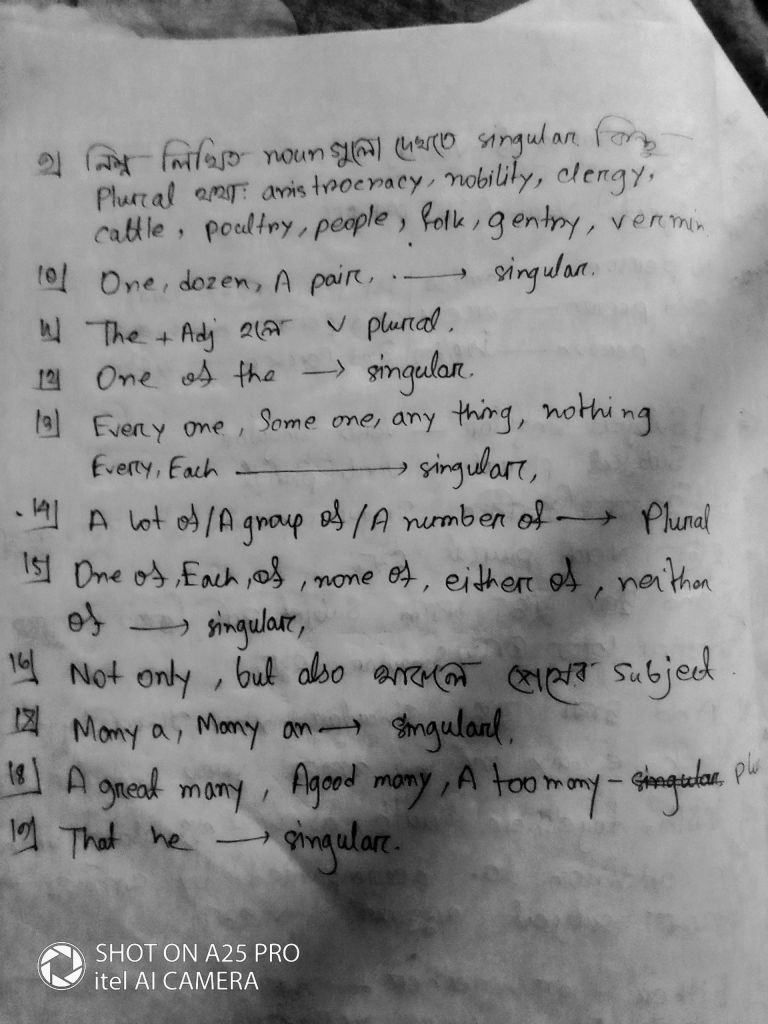 ৯। নিম্ন লিখিত noun গুলো দেখতে singular কিন্তু
Plural যথা: aristrocracy, nobility, clergy,
cattle, poultry, people, folk, gentry, vermin
10| One, dozen, A pair, → singular.
11| The + Adj হলে V plural.
12| One of the → singular.
13| Every one, Some one, any thing, nothing
Every, Each → singular,
14| A lot of/A group of/A number of → Plural
15| One of, Each, of, none of, either of, neither
of → singular,
16| Not only, but also থাকলে শেষের subject.
Many a, Many an → singular,
18| A great many, A good many, A too many - singular plu
19| That he → singular.
SHOT ON A25 PRO
itel AI CAMERA